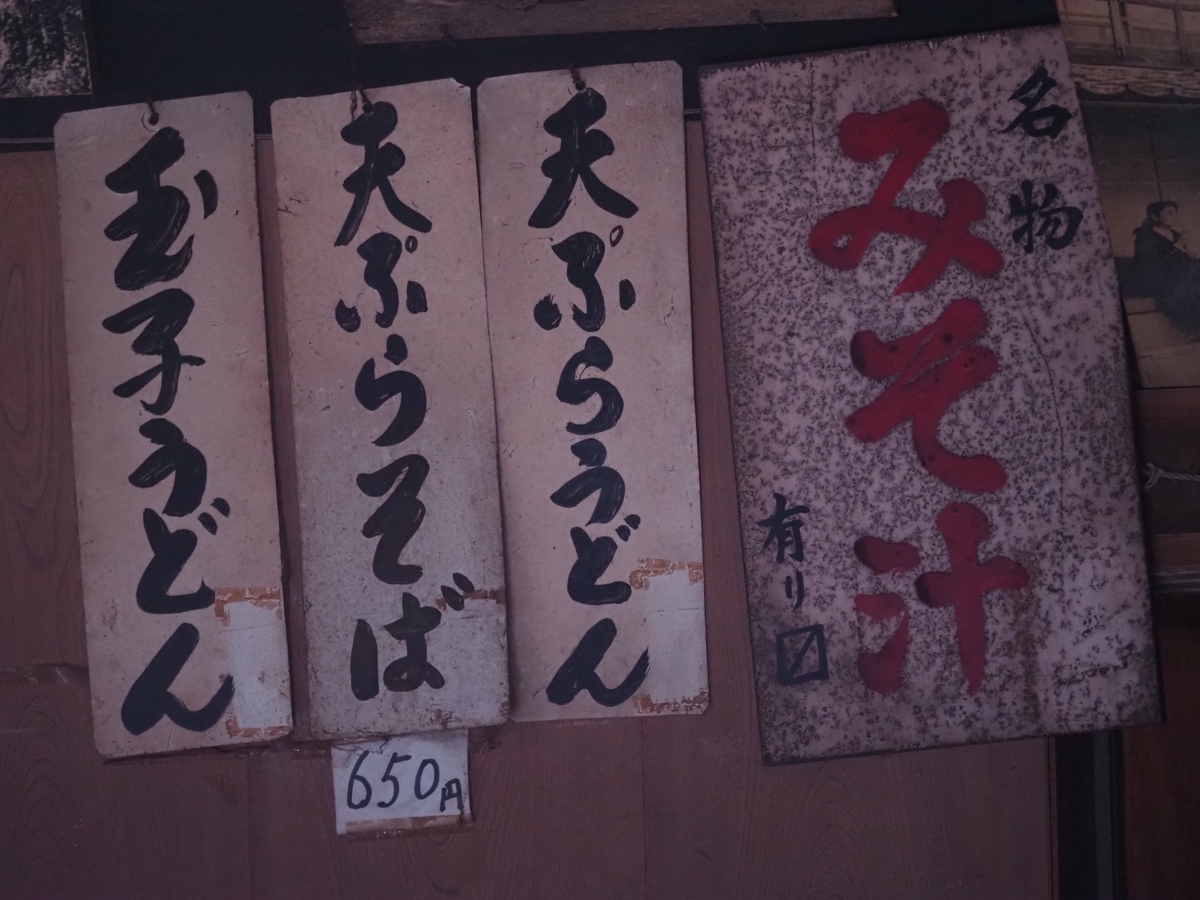 名物
みそ汁
有り〼
天ぷらうどん
天ぷらそば
650円
玉子うどん